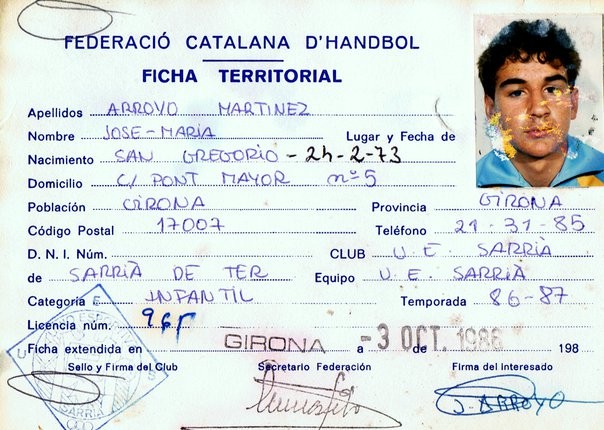 FEDERACIÓ CATALANA D'HANDBOL
FICHA TERRITORIAL
Apellidos ARROYO MARTINEZ
Nombre JOSE-MARIA Lugar y Fecha de
Nacimiento SAN GREGORIO - 24-2-73
Domicilio C/ PONT MAYOR nº 5
Población GIRONA Provincia GIRONA
Código Postal 17007 Teléfono 21-31-85
D. N. I. Núm. CLUB U. E. SARRIÀ
de SARRIÀ DE TER Equipo U. E. SARRIÀ
Categoría INFANTIL Temporada 86-87
Licencia núm.
Ficha extendida en GIRONA a -3 de OCT. 1986 198
Sello y Firma del Club Secretario Federación Firma del Interesado
SARRIÀ J. ARROYO